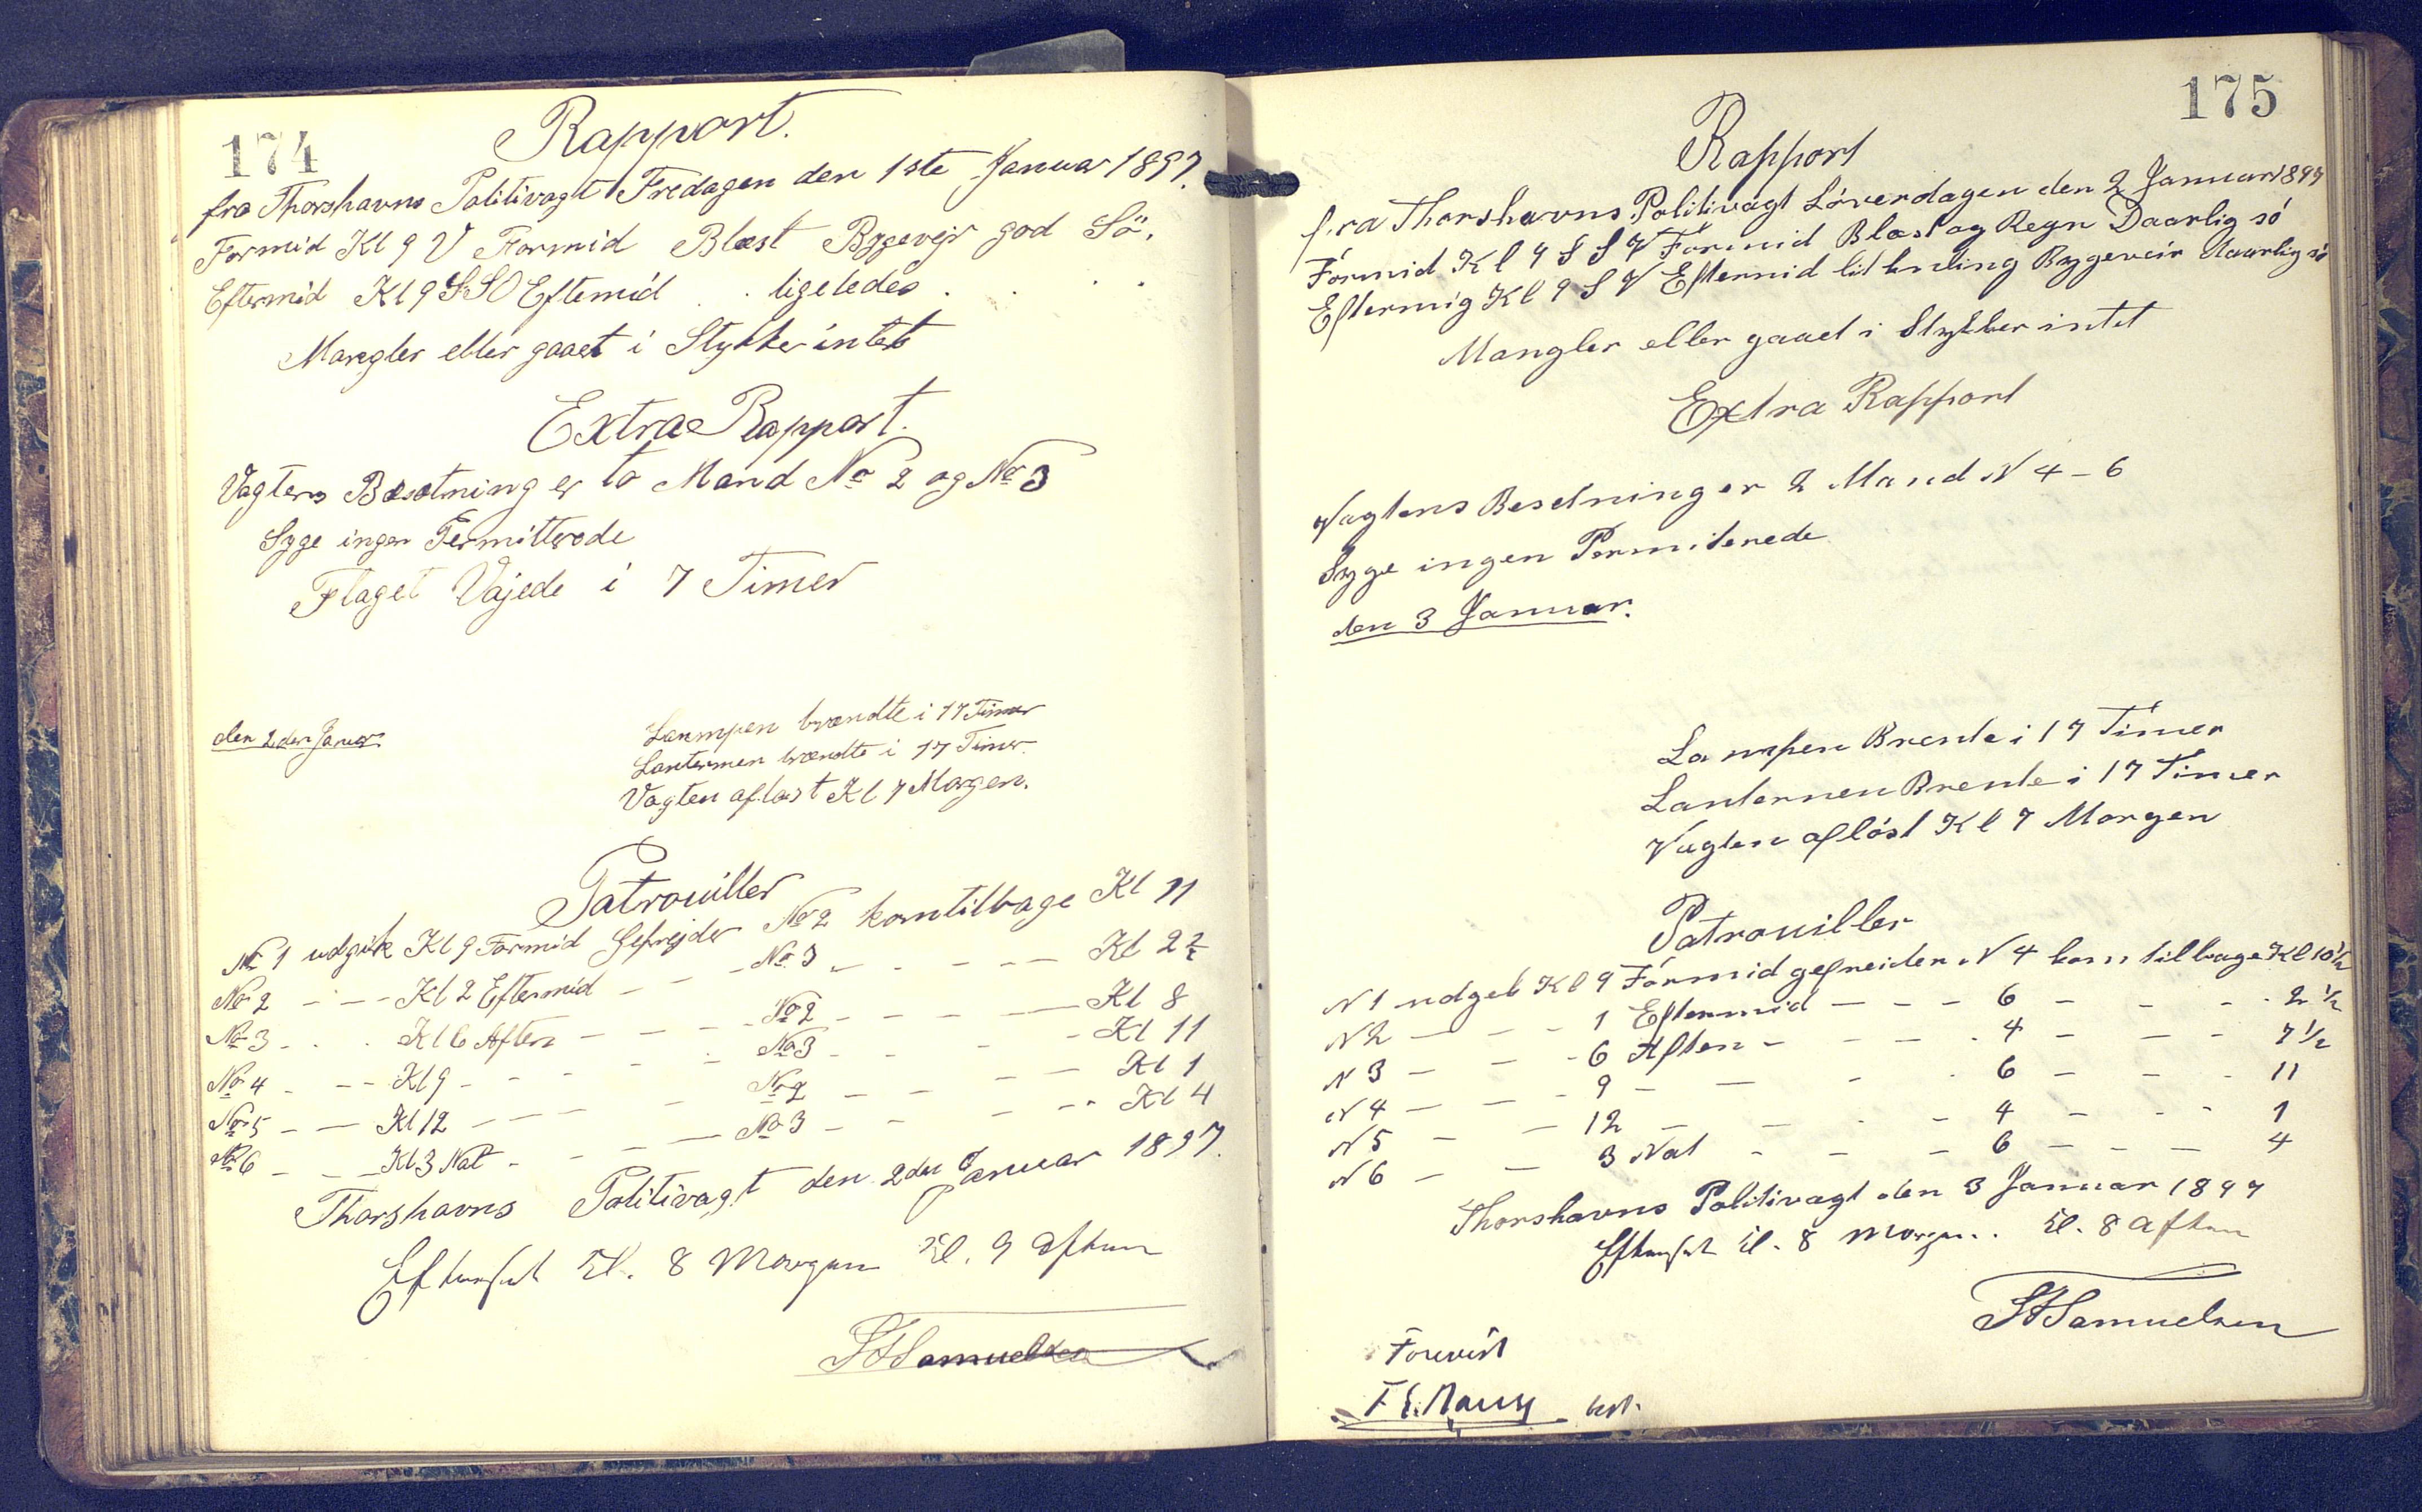 174
Rapport.
fra Thorshavns Politivagt Fredagen den 1ste Januar 1897.
Formid Kl 9 V Formid Blæst Bygevejr god Sö.
Eftermid Kl 9 SSO Eftemid . . ligeledes . . . .
Mangler eller gaaet i Stykker intet
Extra Rapport.
Vagtens Besætning er to Mand No 2 og No 3
Syge ingen Permitterede
Flaget Vajede i 7 Timer
den 2den Januar.
Lammpen brændte i 17 Timer
Lanternen brændte i 17 Timer.
Vagten aflöst Kl 7 Morgen.
Patrouiller
No 1 udgik Kl 9 Formid Gefrejder No 2 kom tilbage Kl 11
No 2 - - - Kl 2 Eftermid - - - No 3 - - - - - Kl 2 1/2
No 3 - . . Kl 6 Aften - - - - No 2 - - - - - Kl 8
No 4 - - - Kl 9 - - - - - . No 3 - - - - Kl 11
No 5 - - Kl 12 - - - - - No 2 - - - - Kl 1
No 6 - - - Kl 3 Nat - - - - No 3 - - - - - Kl 4
Thorshavns Politivagt den 2den Januar 1897.
Efterset Kl. 8 Morgen Kl. 9 Aften
Samuelsen
175
Rapport
fra Thorshavns Politivagt Löverdagen den 2 Januar 1897
Formid Kl 9 S S V Formid Blæst og Regn Daarlig sö
Eftermig Kl 9 S V Eftermid lit kuling Byggeveir daarlig sö
Mangler eller gaaet i Stykker intet
Extra Rapport
Vagtens Besetning er 2 Mand N 4 - 6
Syge ingen Permiterede
den 3 Januar.
Lampen Brente i 17 Timer
Lanternen Brente i 17 Timer
Vagten aflöst Kl 7 Morgen
Patrouiller
N 1 udgek Kl 9 Formid gefreider N 4 kom tilbage Kl 10 1/2
N 2 - - - 1 Eftermid - - - 6 - - - - 2 1/2
N 3 - - - 6 Aften - - - - 4 - - - 7 1/2
N 4 - - - 9 - - - - 6 - - - 11
N 5 - - 12 - - . - 4 - - - 1
N 6 - - 3 Nat - - - 6 - - - 4
Thorshavns Politivagt den 3 Januar 1897
Efterset Kl. 8 Morgen. Kl. 8 Aften
Samuelsen
Forevist